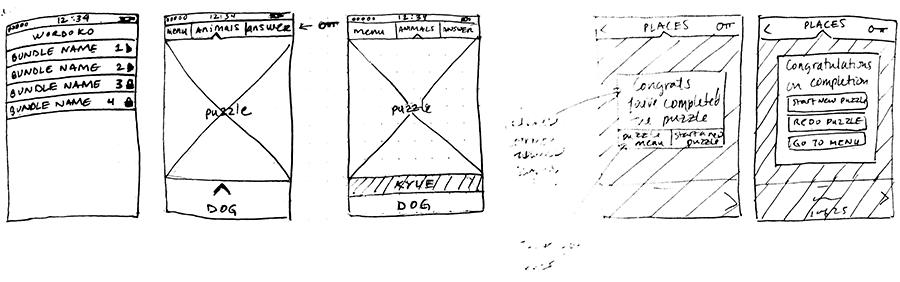 12:34
WORDOKO
BUNDLE NAME 1
BUNDLE NAME 2
BUNDLE NAME 3
BUNDLE NAME 4
12:34
menu ANIMALS answer
puzzle
DOG
12:34
menu ANIMALS ANSWER
puzzle
KYLE
DOG
PLACES
Congrats
You've completed
puzzle
puzzle menu
start a new puzzle
PLACES
Congratulations
on completion
START NEW PUZZLE
REDO PUZZLE
GO TO MENU